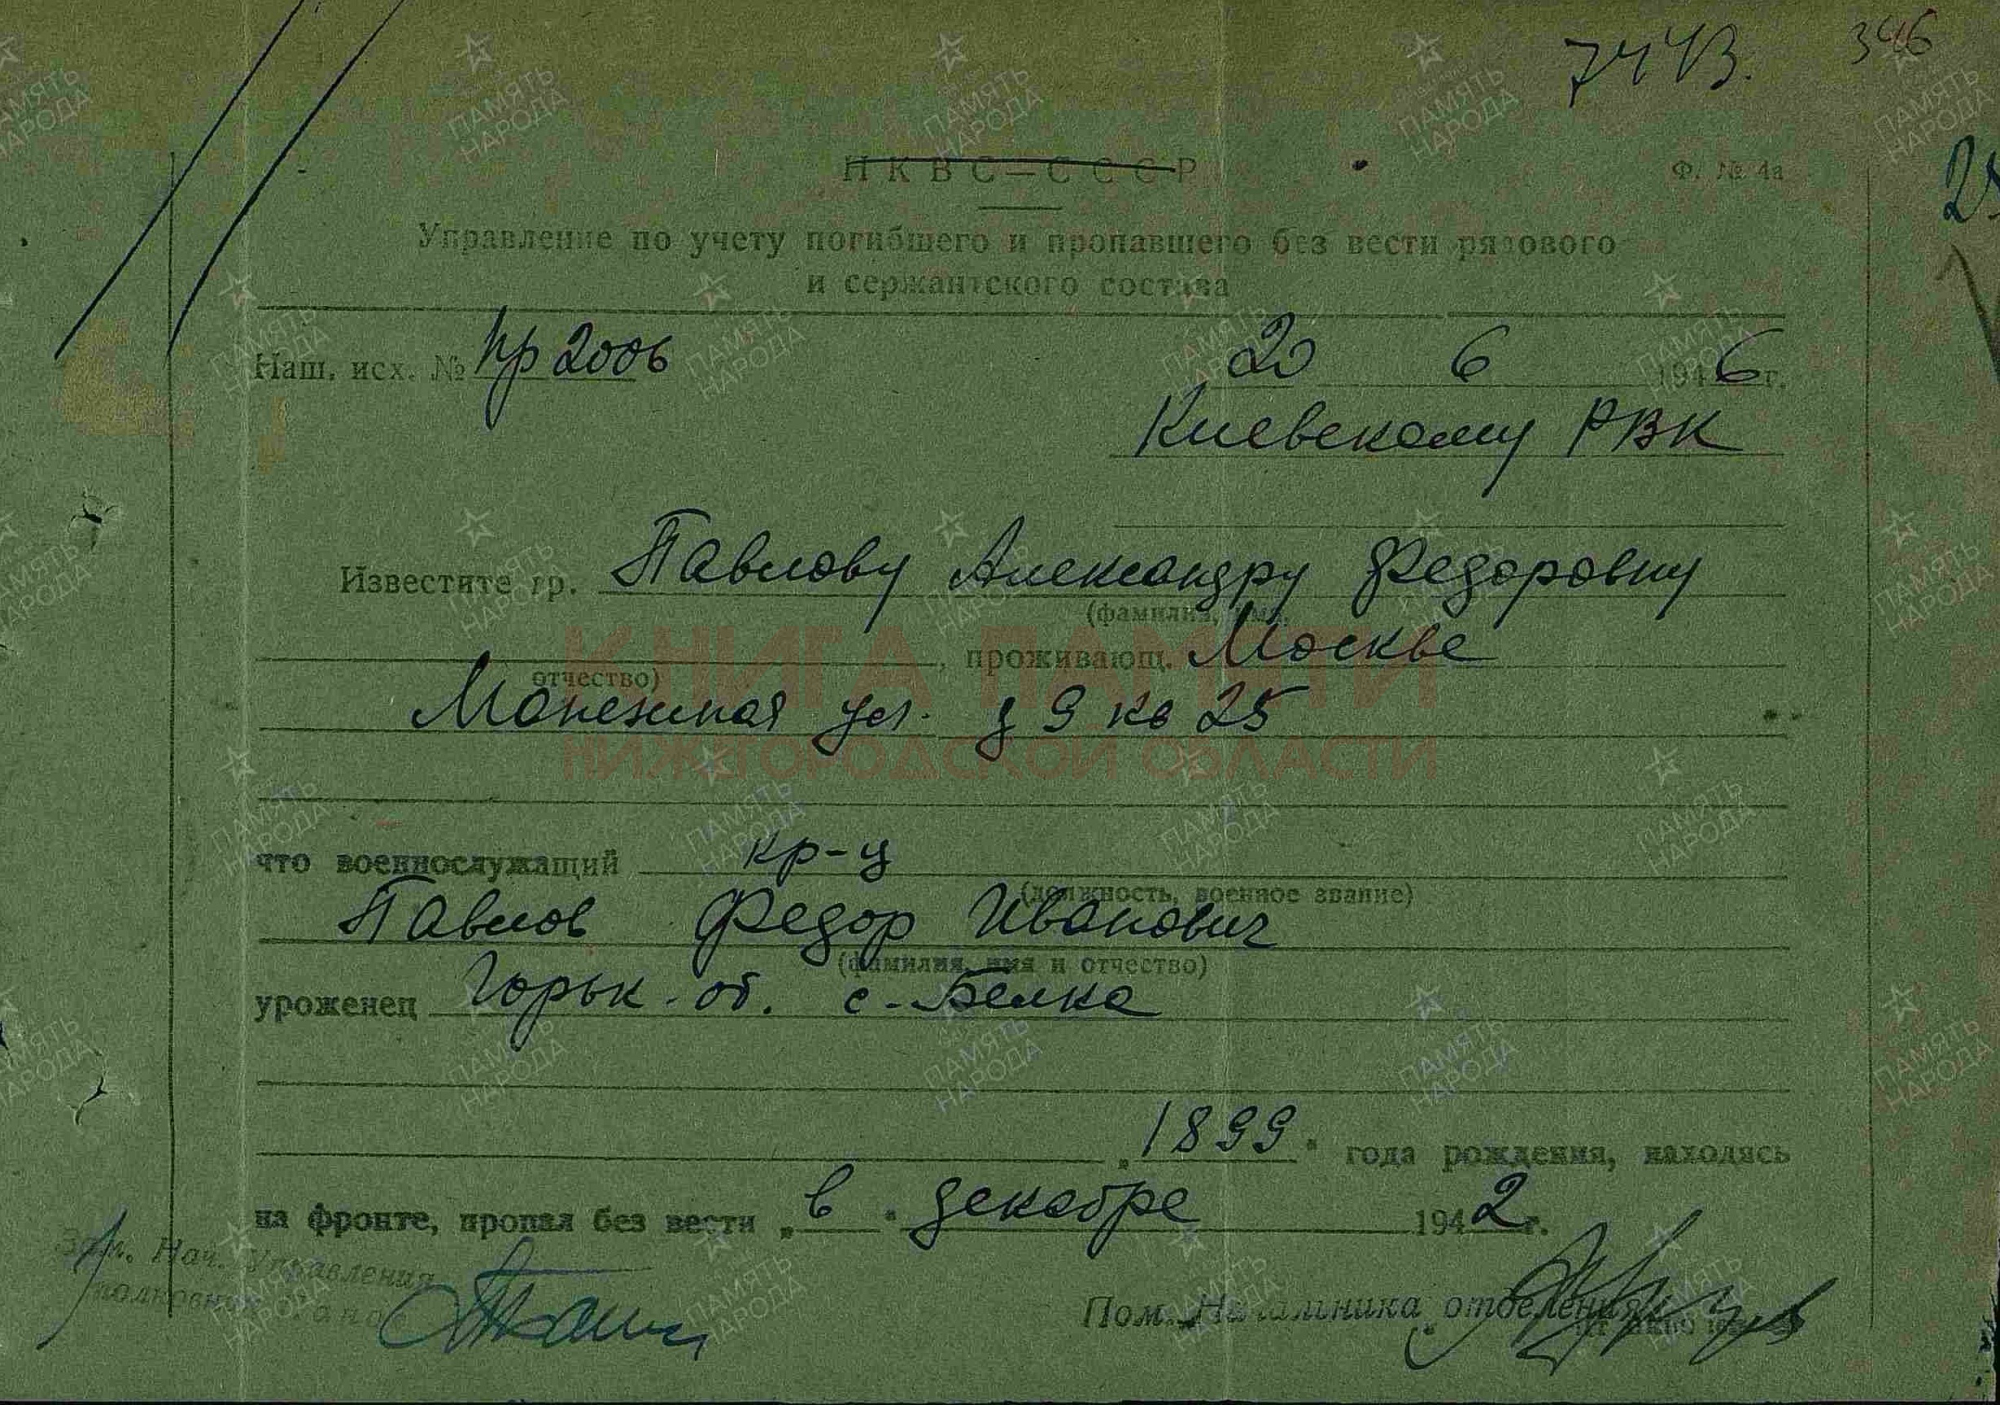 7443.
346
НКВС—СССР
Ф. № 4а
Управление по учету погибшего и пропавшего без вести рядового
и сержантского состава
Наш. исх. № пр 2006
20 6 1946 г.
Киевскому РВК
Известите гр. Павлову Александру Федоровну
(фамилия, имя,
, проживающ. Москве
отчество)
Манежная ул. д 9 кв 25
КНИГА ПАМЯТИ
НИЖЕГОРОДСКОЙ ОБЛАСТИ
что военнослужащий кр-ц
(должность, военное звание)
Павлов Федор Иванович
(фамилия, имя и отчество)
уроженец Горьк. об. с. Белка
„1899" года рождения, находясь
на фронте, пропал без вести „в" декабре 1942 г.
Зам. Нач. Управления
полковник
Пом. Начальника отделения
ПАМЯТЬ НАРОДА